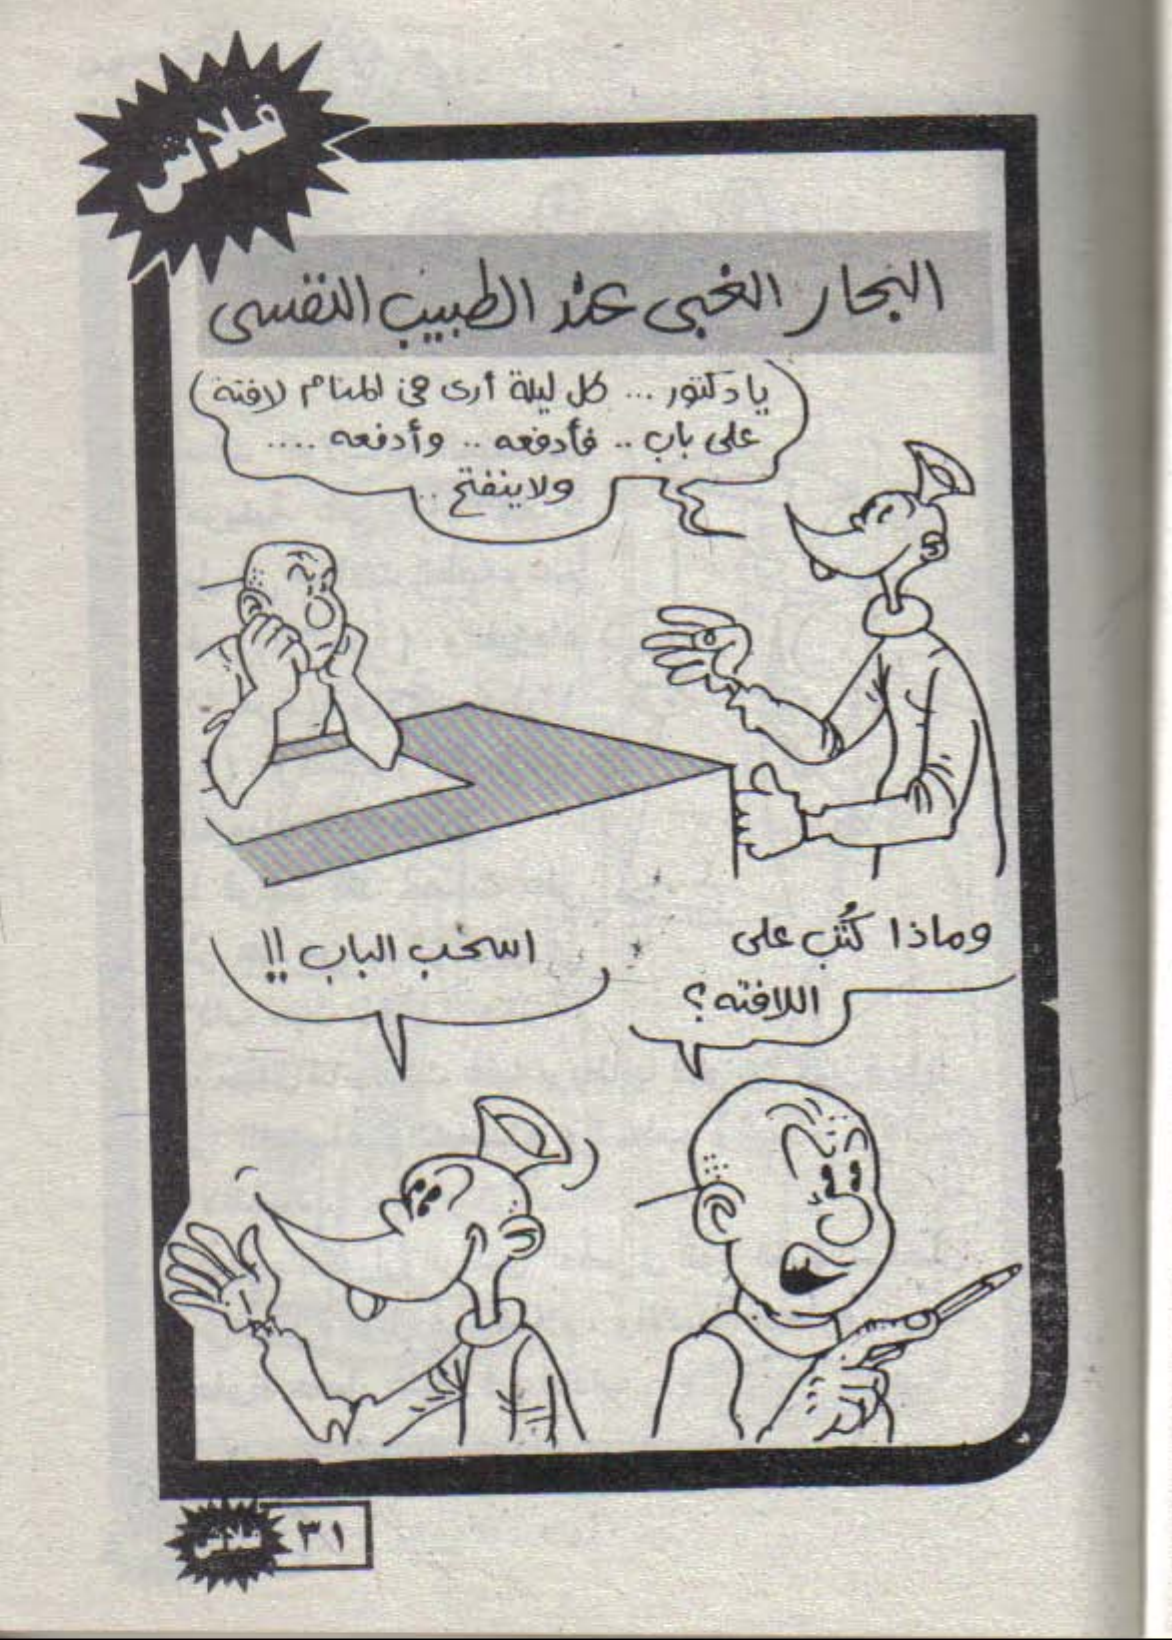 فلاش
النجار الغبى عند الطبيب النفسى
يا دكتور ... كل ليلة أرى فى المنام لافتة
على باب .. فأدفعه .. وأدفعه ....
ولاينفتح ..
وماذا كُتب على
اللافته؟
اسحب الباب !!
فلاش
٣١